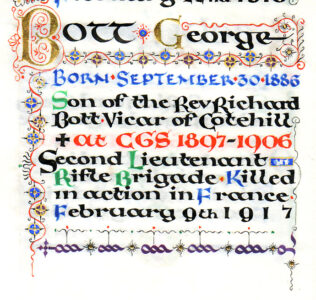 Bott George
Born · September · 30 · 1886
Son of the Rev Richard
Bott Vicar of Cotehill
✝ at CGS 1897-1906
Second Lieutenant
Rifle Brigade · Killed
in action in France ·
February 9th 1917